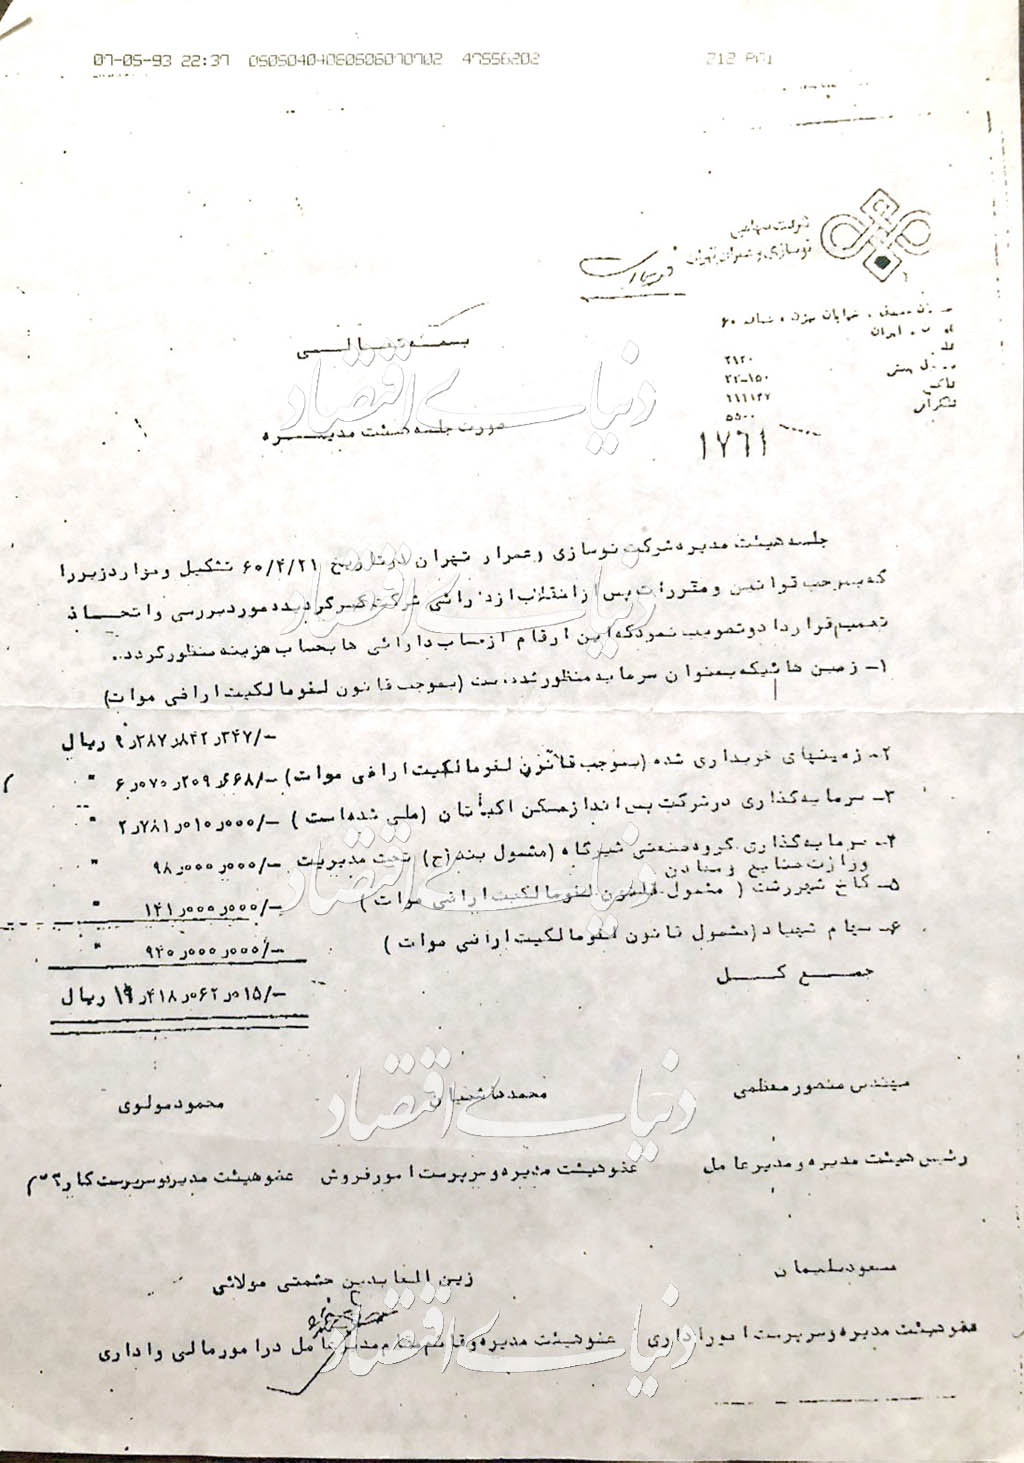 07-05-93 22:37 0505040406050607070702 47556202 212 P01
شرکت سهامی
نوسازی و عمران تهران
خیابان شماره ۶۰
ایران
۲۱۲۰
۱۱۱۱۲۷ فاکس
۵۵۰۰ تلگرافی
۱۷۶۱
بسمه تعالی
صورت جلسه هیئت مدیره
جلسه هیئت مدیره شرکت نوسازی و عمران تهران در تاریخ ۶۰/۴/۲۱ تشکیل و موارد زیر را
که بموجب قوانین و مقررات پس از انقلاب از دارائی شرکت کسر گردیده مورد بررسی و اتخاذ
تصمیم قرار داد و تصویب نمود که این ارقام از حساب دارائی ها بحساب هزینه منظور گردد.
۱- زمین هائیکه بعنوان سرمایه منظور شده است (بموجب قانون لغو مالکیت اراضی موات)
۹ر۳۸۷ر۸۴۲ر۳۴۷/- ریال
۲- زمینهای خریداری شده (بموجب قانون لغو مالکیت اراضی موات) ۶ر۰۷۰ر۲۰۹ر۶۶۸/- "
۳- سرمایه گذاری در شرکت پس انداز مسکن اکباتان (ملی شده است) ۲ر۷۸۱ر۰۱۰ر۰۰۰/- "
۴- سرمایه گذاری گروه صنعتی شیرگاه (مشمول بند ج) تحت مدیریت ۹۸ر۰۰۰ر۰۰۰/- "
وزارت صنایع و معادن
۵- کاخ شهر رشت (مشمول قانون لغو مالکیت اراضی موات) ۱۴۱ر۰۰۰ر۰۰۰/- "
۶- سهام شهیاد (مشمول قانون لغو مالکیت اراضی موات) ۹۴۰ر۰۰۰ر۰۰۰/- "
جمع کل ۱۹ر۴۱۸ر۰۶۲ر۰۱۵/- ریال
مهندس منصور معظمی محمد هاشمیان محمود مولوی
رئیس هیئت مدیره و مدیر عامل عضو هیئت مدیره و سرپرست امور فروش عضو هیئت مدیره و سرپرست
مسعود سلیمان زین العابدین حشمتی مولائی
عضو هیئت مدیره و سرپرست امور اداری عضو هیئت مدیره و قائم مقام مدیر عامل در امور مالی و اداری
دنیای اقتصاد
دنیای اقتصاد
دنیای اقتصاد
دنیای اقتصاد
دنیای اقتصاد